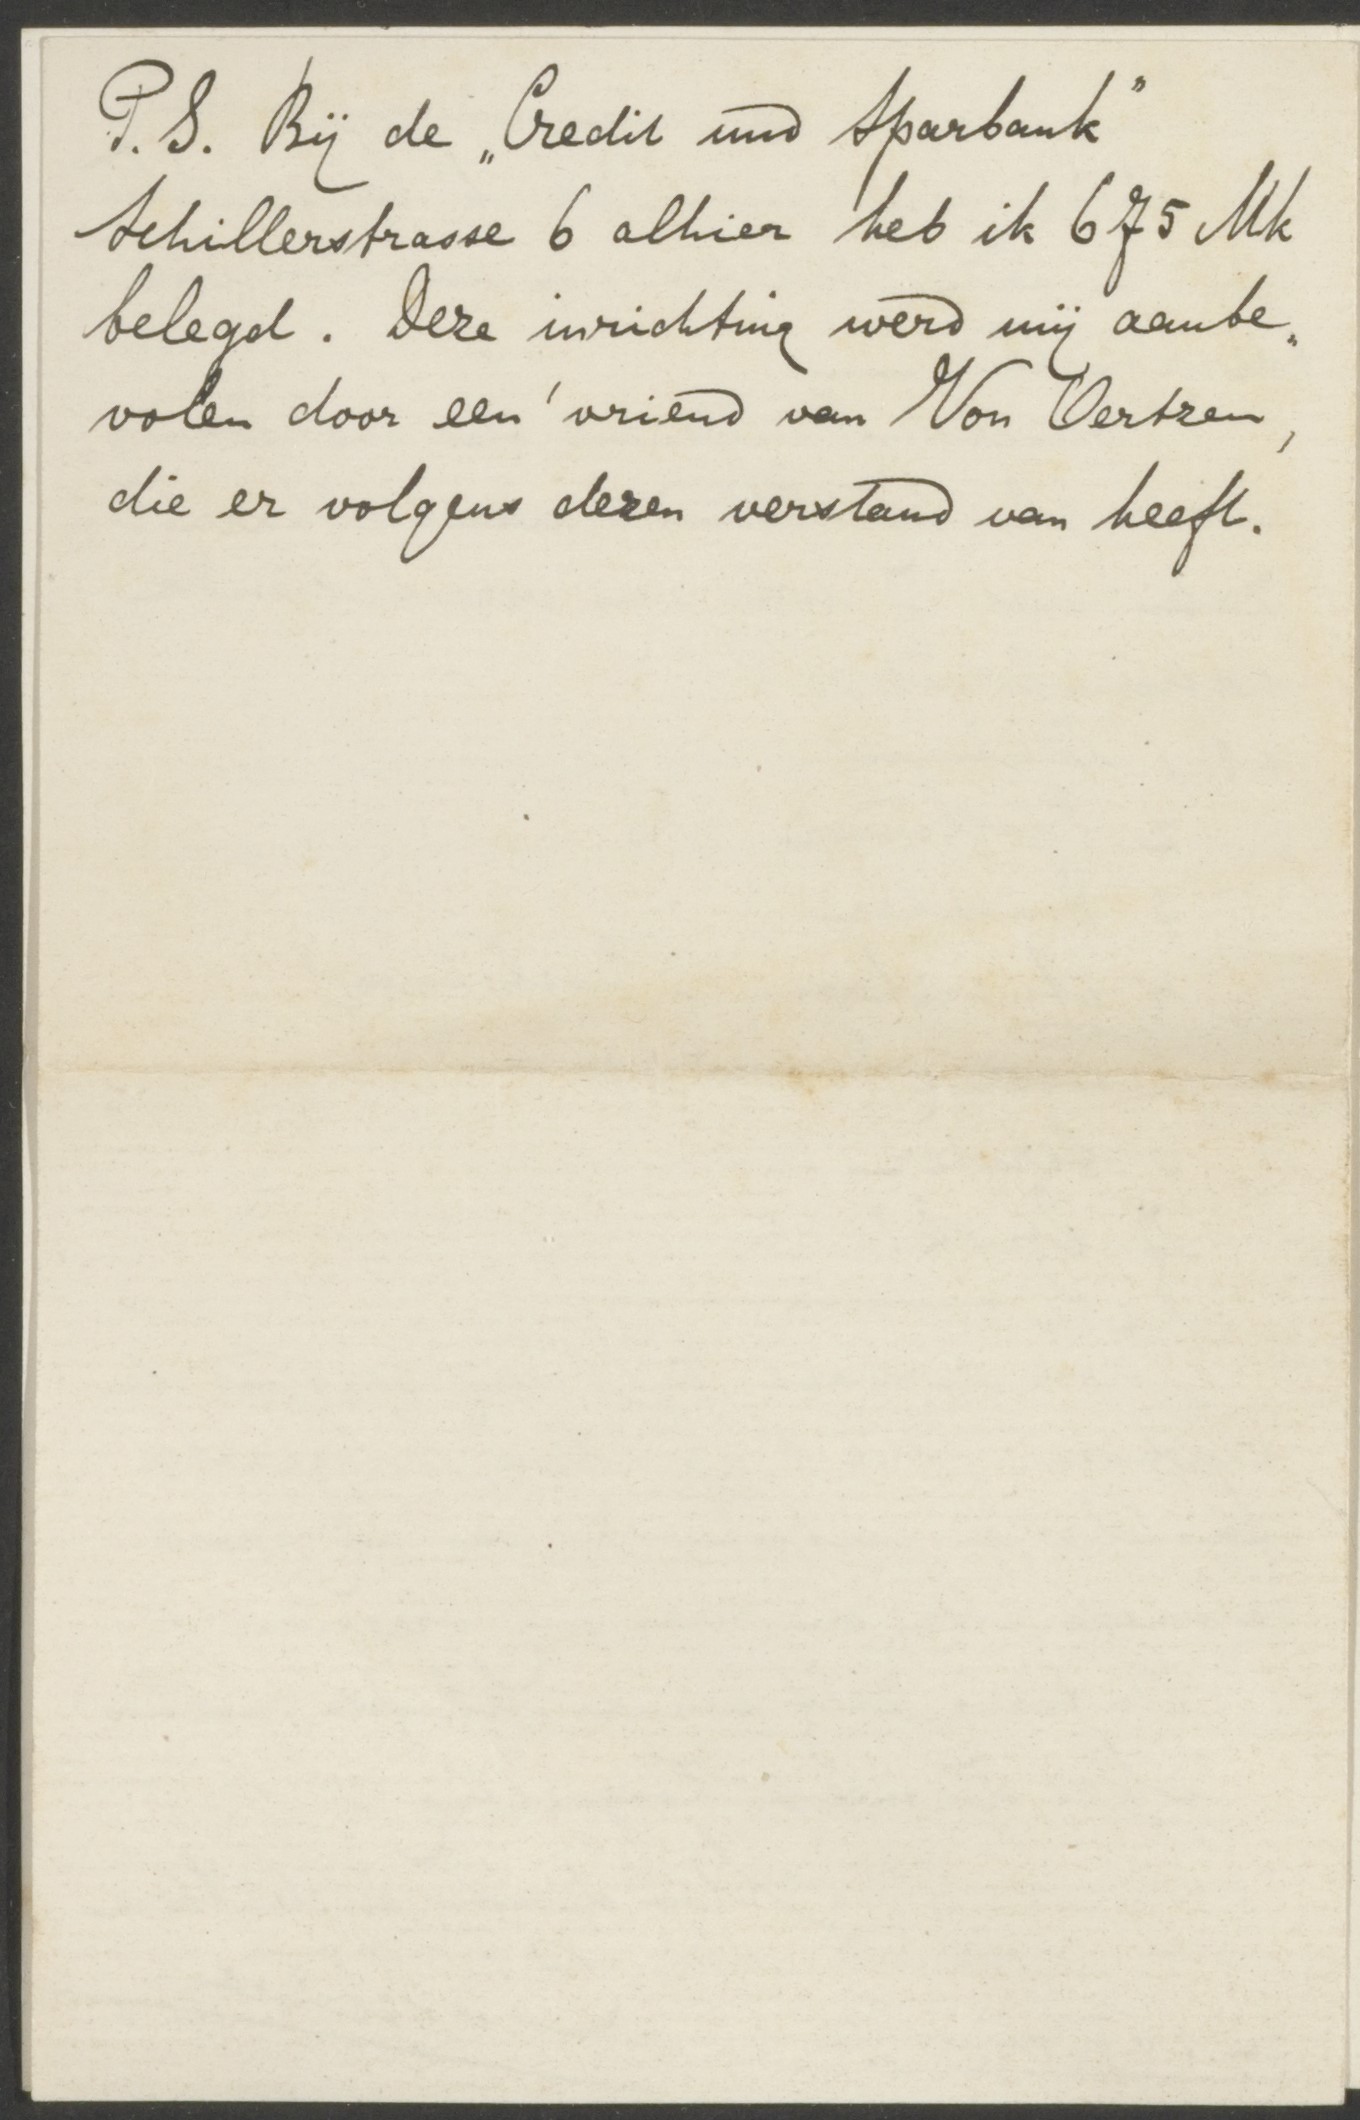 P.S. Bij de „Credit und Sparbank”
Schillerstrasse 6 alhier heb ik 675 Mk
belegd. Deze inrichting werd mij aanbe„
volen door een' vriend van Von Oertzen,
die er volgens dezen verstand van heeft.